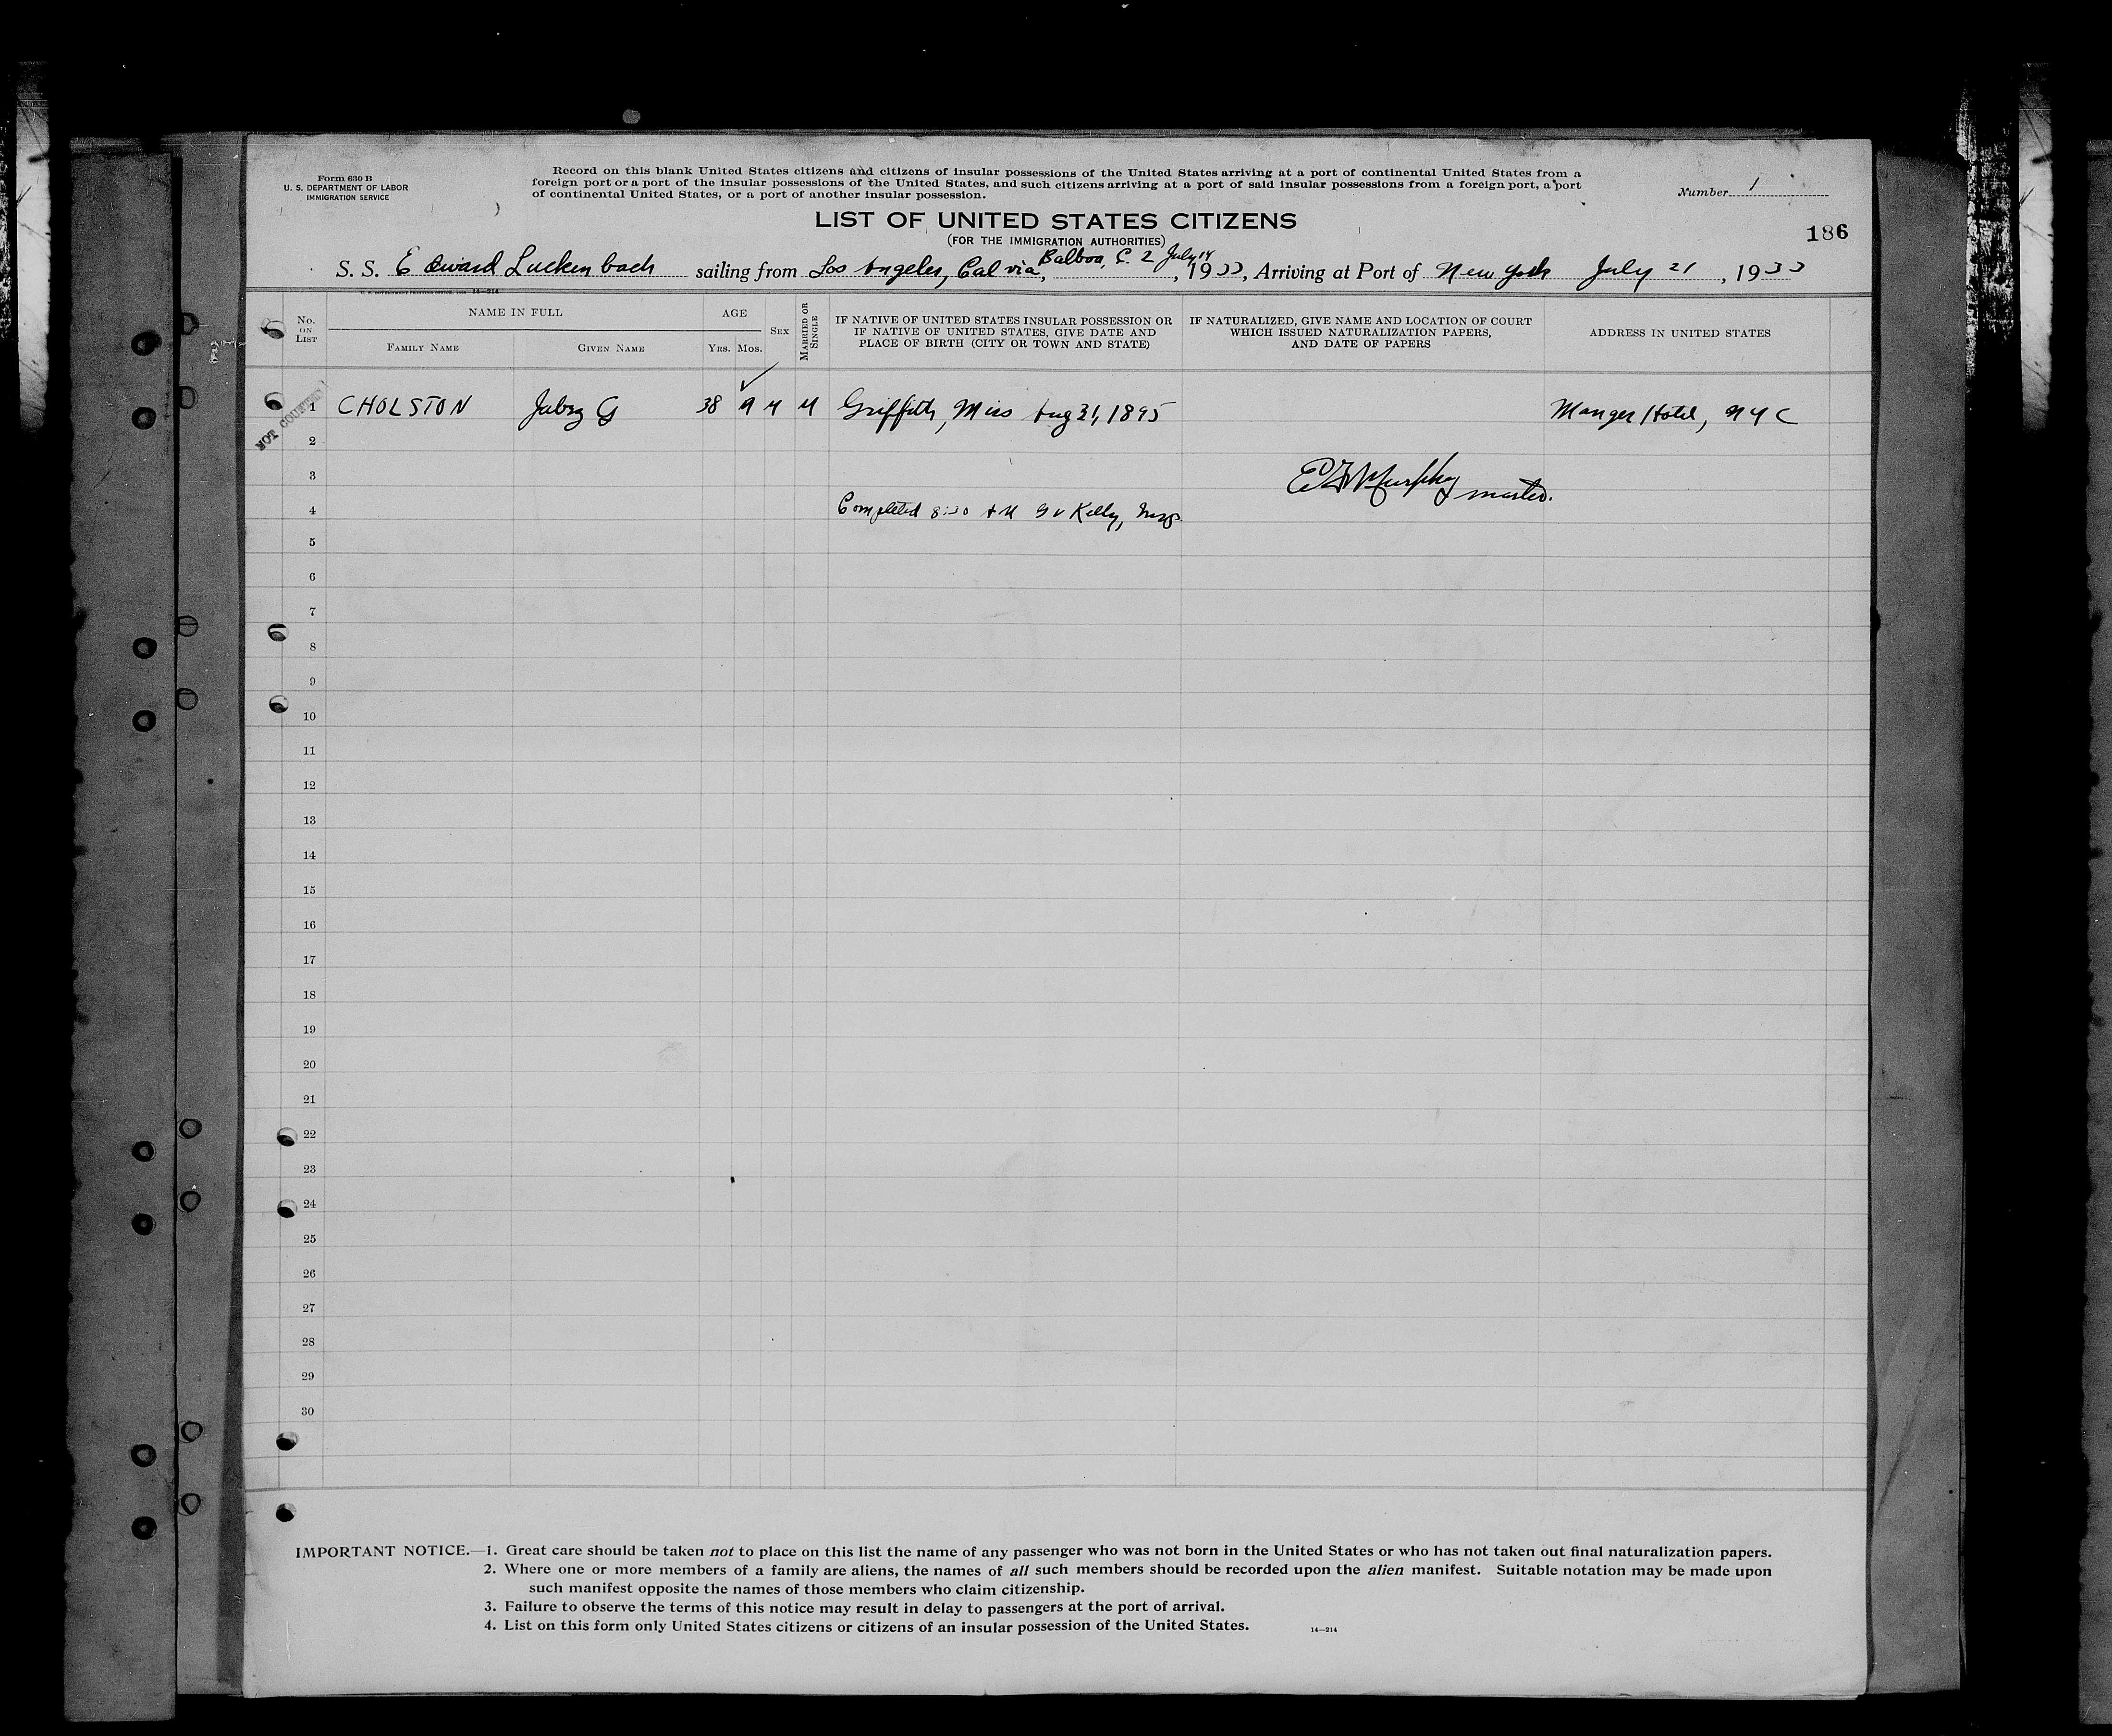 Form 630 B
U. S. DEPARTMENT OF LABOR
IMMIGRATION SERVICE
Record on this blank United States citizens and citizens of insular possessions of the United States arriving at a port of continental United States from a
foreign port or a port of the insular possessions of the United States, and such citizens arriving at a port of said insular possessions from a foreign port, a port
of continental United States, or a port of another insular possession.
Number 1
LIST OF UNITED STATES CITIZENS
(FOR THE IMMIGRATION AUTHORITIES)
186
S. S. Edward Luckenbach sailing from Los Angeles, Cal via, Balboa, C. Z July 14, 1933, Arriving at Port of New York July 21, 1933
14—214
No. ON LIST
NAME IN FULL
FAMILY NAME
GIVEN NAME
AGE
YRS. MOS.
SEX
MARRIED OR SINGLE
IF NATIVE OF UNITED STATES INSULAR POSSESSION OR
IF NATIVE OF UNITED STATES, GIVE DATE AND
PLACE OF BIRTH (CITY OR TOWN AND STATE)
IF NATURALIZED, GIVE NAME AND LOCATION OF COURT
WHICH ISSUED NATURALIZATION PAPERS,
AND DATE OF PAPERS
ADDRESS IN UNITED STATES
NOT COUNTED
1 CHOLSTON G 38 M M Griffith, Miss Aug 31, 1895 Manger Hotel, NYC
2
3 Murphy master.
4 Completed 8:30 AM Kelly, Insp.
5
6
7
8
9
10
11
12
13
14
15
16
17
18
19
20
21
22
23
24
25
26
27
28
29
30
IMPORTANT NOTICE.—1. Great care should be taken not to place on this list the name of any passenger who was not born in the United States or who has not taken out final naturalization papers.
2. Where one or more members of a family are aliens, the names of all such members should be recorded upon the alien manifest. Suitable notation may be made upon
such manifest opposite the names of those members who claim citizenship.
3. Failure to observe the terms of this notice may result in delay to passengers at the port of arrival.
4. List on this form only United States citizens or citizens of an insular possession of the United States.
14—214